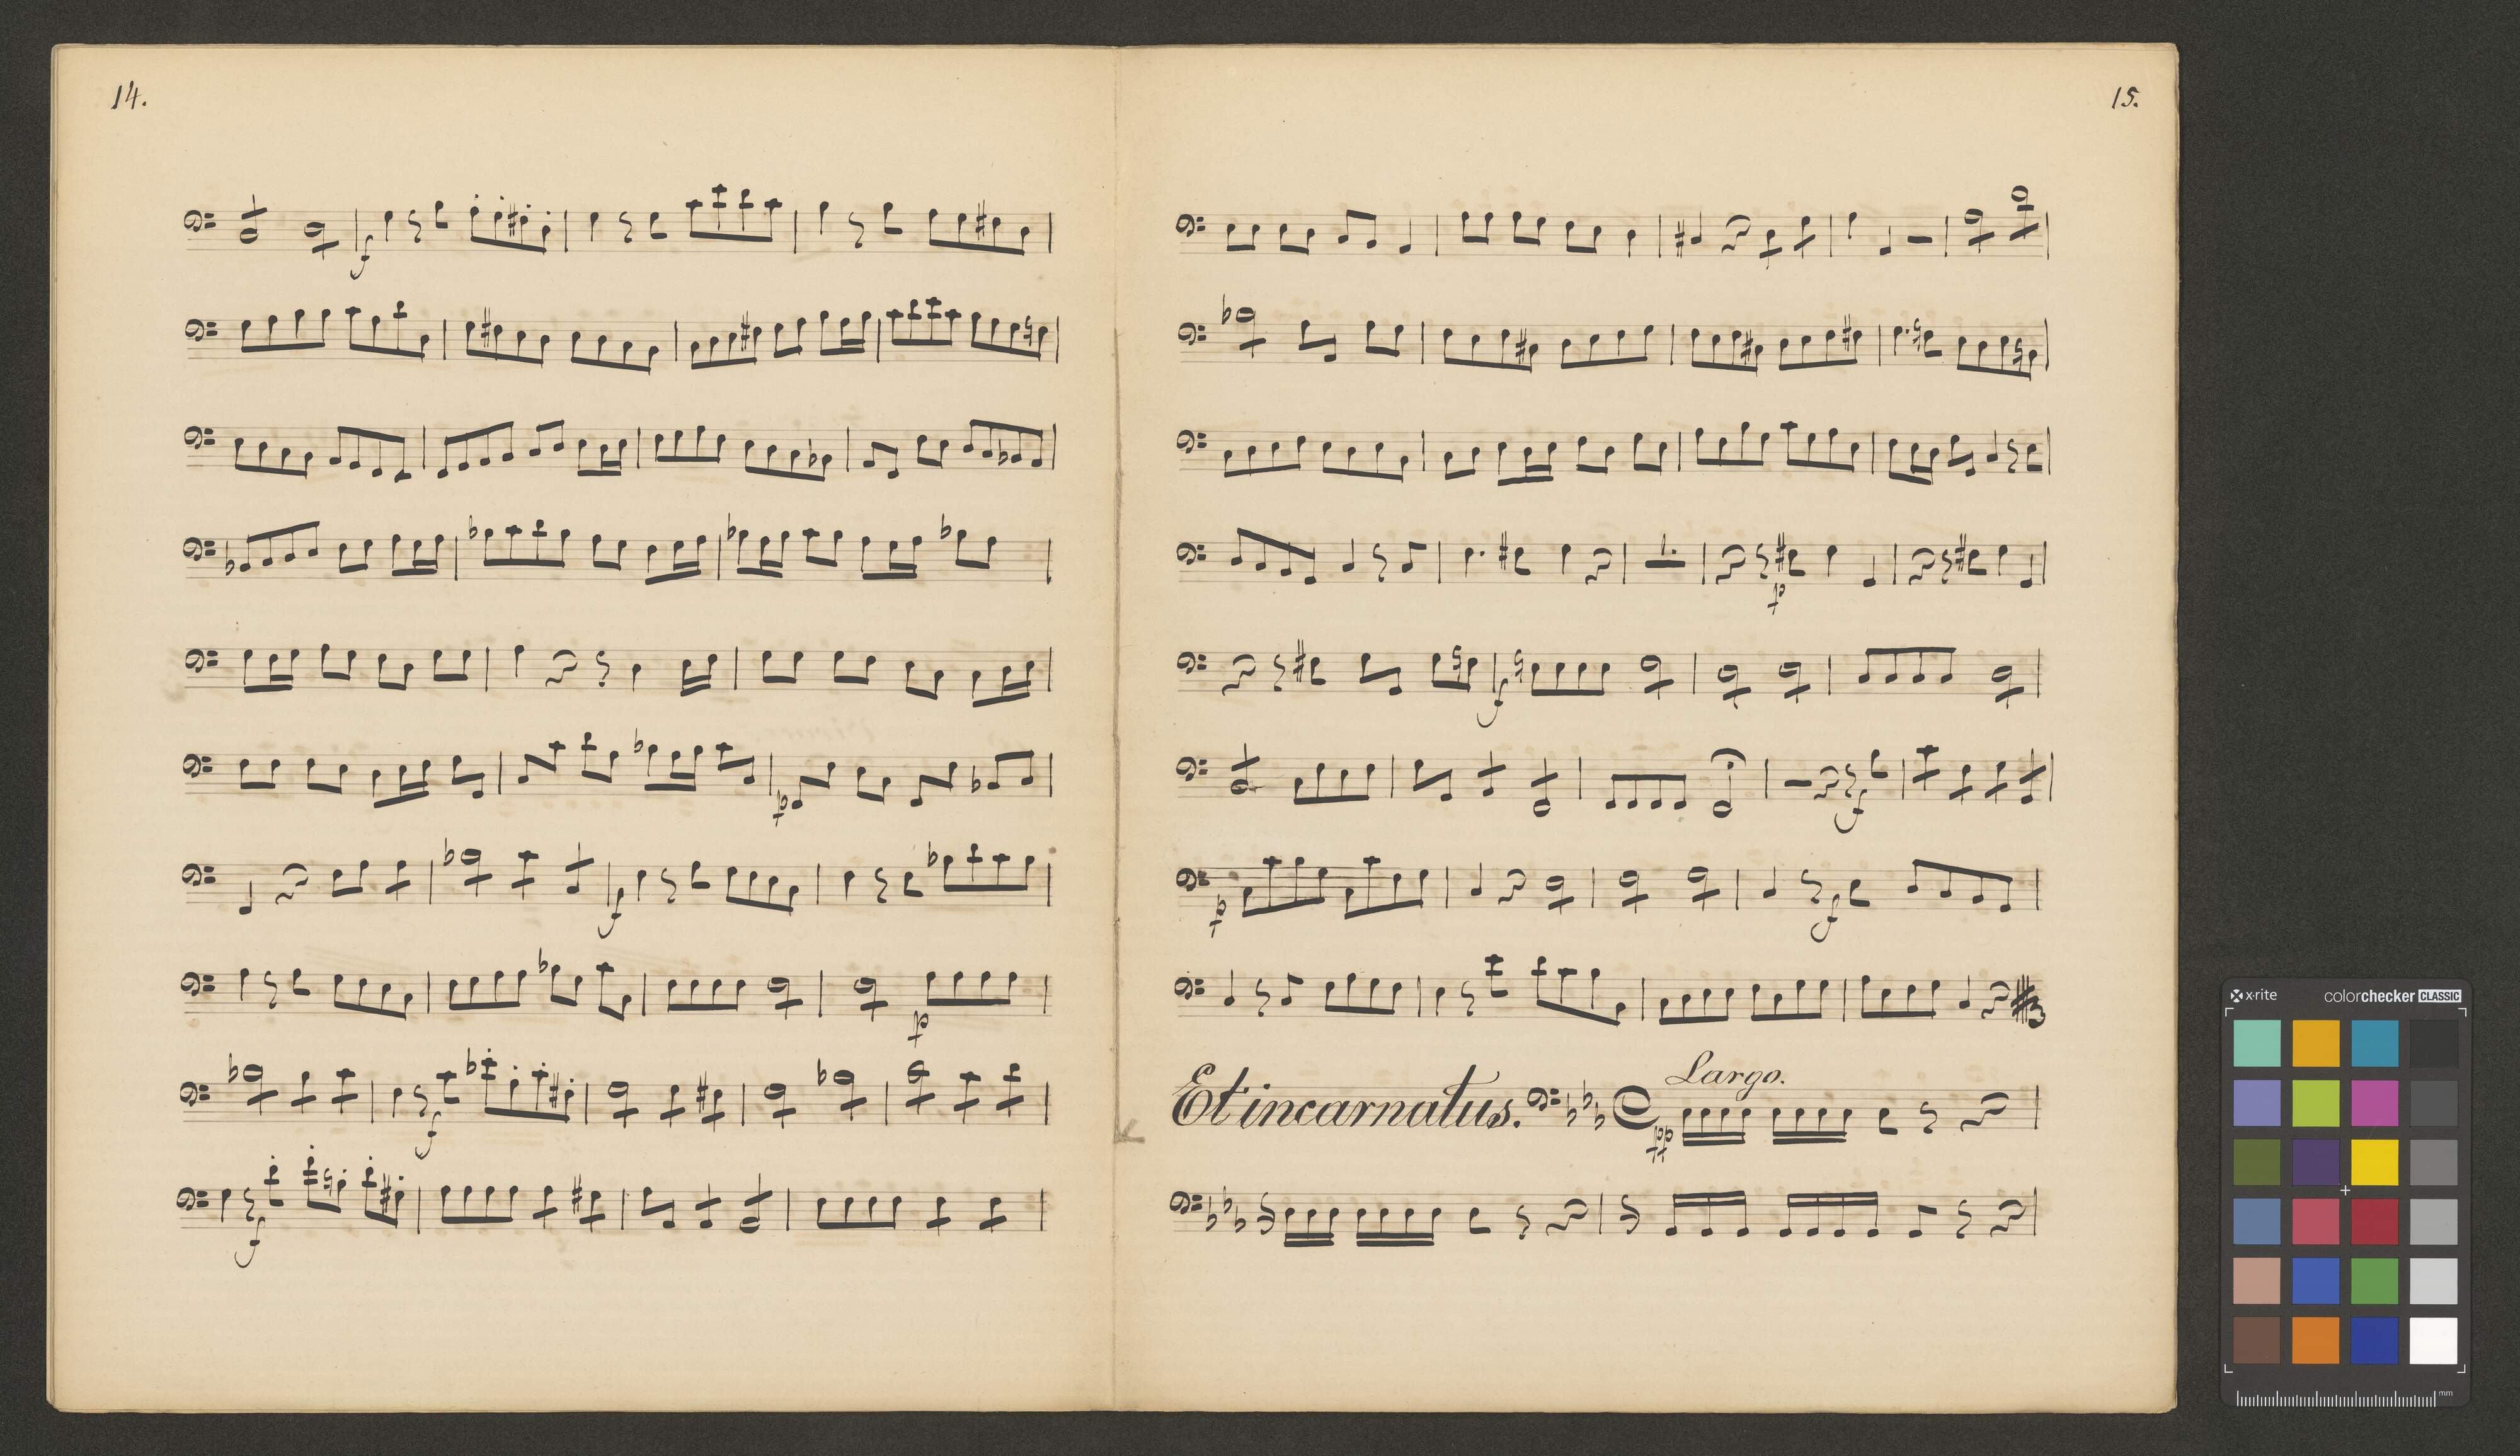 14.
15.
f
p
f
p
f
f
p
f
f
p
f
Largo.
Et incarnatus.
pp
x-rite
colorchecker CLASSIC
mm